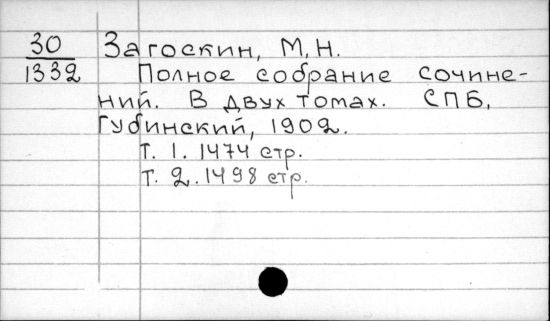 30 Загоскин, М.Н.
1332 Полное собрание сочине-
ний. В двух томах. СПБ,
Губинский, 1902.
Т. 1. 1474 стр.
Т. 2. 1498 стр.